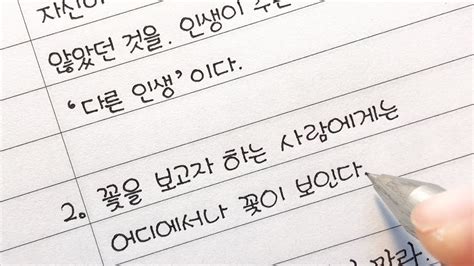 자신이
않았던 것을. 인생이
'다른 인생' 이다.
2. 꽃을 보고자 하는 사람에게는
어디에서나 꽃이 보인다.
말라.